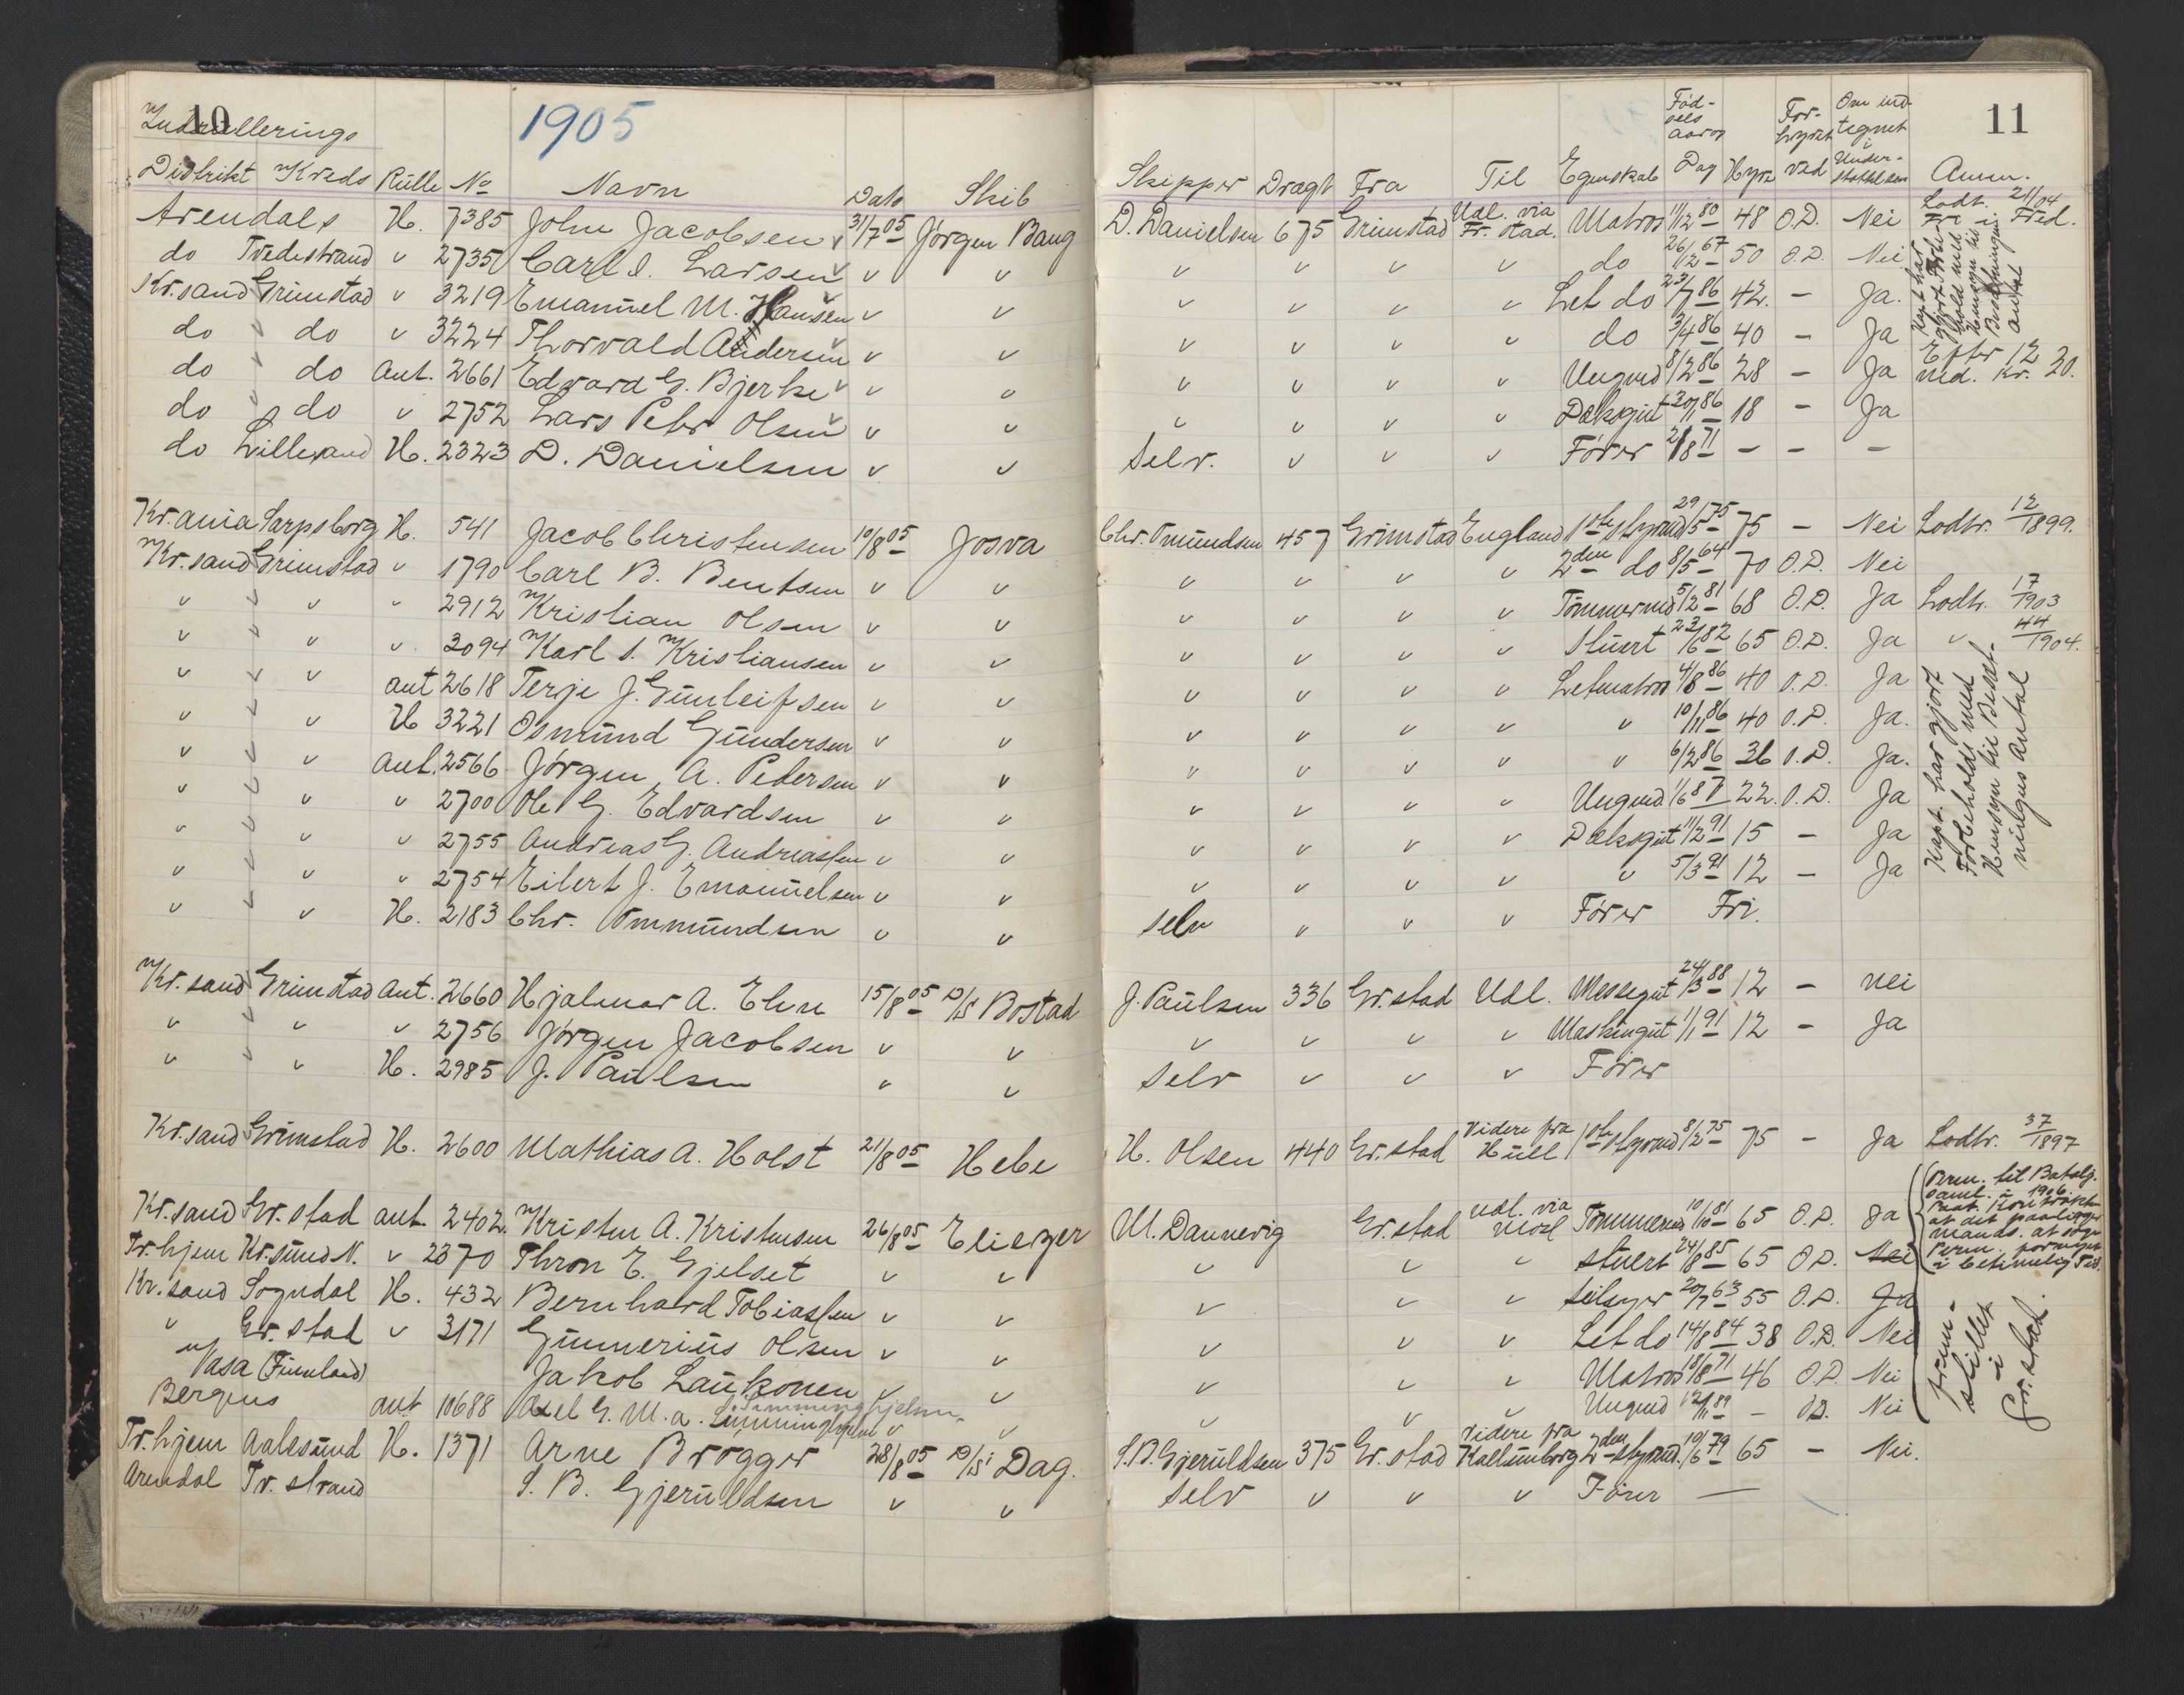 10
Indrullerings
1905
Distrikt Kreds Rulle No Navn Dato Skib
Arendals H. 7385 John Jacobsen 31/7 05 Jørgen Bang
do Tvedestrand v 2735 Carl I. Larsen v v
Kr.sand Grimstad v 3219 Emanuel M. Hansen v v
do v do v 3224 Thorvald Andersen v v
do v do ant. 2661 Edvard G. Bjerke v v
do do v 2752 Lars Peter Olsen v v
do Lillesand H. 2323 D. Danielsen v v
Kr.ania Sarpsborg H. 541 Jacob Christensen 10/8 05 Josva
Kr.sand Grimstad v 1790 Carl B. Bentsen v v
v v v v 2912 Kristian Olsen v v
v v v v 3094 Karl S. Kristiansen v v
v v v ant 2618 Terje J. Gunleifsen v v
v v v H 3221 Osmund Gundersen v v
v v v ant. 2566 Jørgen A. Pedersen v v
v v v v 2700 Ole G. Edvardsen v v
v v v v 2755 Andreas G. Andreassen v v
v v v v 2754 Eilert J. Emanuelsen v v
v v v H. 2183 Chr. Ommundsen v v
Kr.sand Grimstad ant. 2660 Hjalmar A. Ehn 15/8 05 D/S Bostad
v v v v 2756 Jørgen Jacobsen v v
v v v H. 2985 J. Paulsen v v
Kr.sand Grimstad H. 2600 Mathias A. Holst 21/8 05 Hebe
Kr.sand Gr.stad ant 2402. Kristen A. Kristensen 26/8 05 Eliezer
Tr.hjem Kr.sund N. v 2370 Thron E. Gjelset v v
Kr.sand Sogndal H. 432 Bernhard Tobiassen v v
v Gr.stad v 3171 Gunnerius Olsen v v
Vasa (Finnland) Jakob Laukonen v v
Bergens ant 10688 Axel G. M. A. Simminghjelm v v
Simminghjelm
Tr.hjem Aalesund H. 1371 Arne Brøgger 28/8 05 D/S Dag.
Arendal Tv.strand S. B. Gjeruldsen v v
11
Skipper Dragt Fra Til Egenskab Fødselsaar og Dag Hyre Forhyret ved Om indtegnet i Understøttelsen Anm.
D. Danielsen 675 Grimstad Udl. via Fr.stad. Matros 11/12 80 48 O.D. Nei Lodtr. 21/04 Fred.
v v v v do 26/12 67 50 O.D. Nei
v v v v Let do 23/7 86 42. – Ja.
v v v v do 3/4 86 40 – Ja
v v v v Ungmd 8/2 86 28 – Ja Efter 12 md. Kr. 20.
v v v v Daksgut 20/1 86 18 – Ja
Selv. v v v Fører 21/8 71 – – –
Kapt har gjort Forbehold med Hensyn til Besætningens antal
Chr. Ommundsen 457 Grimstad England 1ste Styrmd 29/5 75 75 – Nei Lodtr. 12/1899.
v v v v 2den do 8/5 64 70 O.D. Nei
v v v v Tømmermd 5/2 81 68 O.D. Ja Lodtr. 17/1903
v v v v Stuert 23/6 82 65 O.D. Ja v 44/1904.
v v v v Letmatros 4/8 86 40 O.D. Ja
v v v v v 10/11 86 40 O.D. Ja.
v v v v v 6/2 86 36 O.D. Ja.
v v v v Ungmd 1/6 87 22. O.D. Ja
v v v v Daksgut 11/2 91 15 – Ja
v v v v v 5/3 91 12 – Ja
selv v v v Fører Fri.
Kapt. har gjort Forbehold med Hensyn til Besætningens Antal
J. Paulsen 336 Gr.stad Udl. Messegut 24/3 88 12 – nei
v v v v Maskingut 1/1 91 12 – Ja
Selv v v v Fører
H. Olsen 440 Gr.stad Videre fra Hull 1ste Styrmd 8/2 75 75 – Ja Lodtr. 37/1897
M. Dannevig Gr.stad udl. via Tømmermd 10/10 81 65 O.D. Ja
v v v Stuert 24/8 85 65 O.D. Nei
v v v Seilsyer 20/7 63 55 O.D. Ja
v v v Let do 14/8 84 38 O.D. Nei
v v v Matros 18/8 71 46 O.D. Nei
v v v Ungmd 12/11 89 – O.D. Nei
Perm. til Batalj. saml. i 1906.
at det paaligger Mands. at søge Perm. fornyet i betimelig Tid.
fremstillet i Gr.stad.
S.B. Gjeruldsen 375 Gr.stad Videre fra Kallundborg 2den Styrmd. 10/6 79 65 – Nei.
Selv v v v Fører –